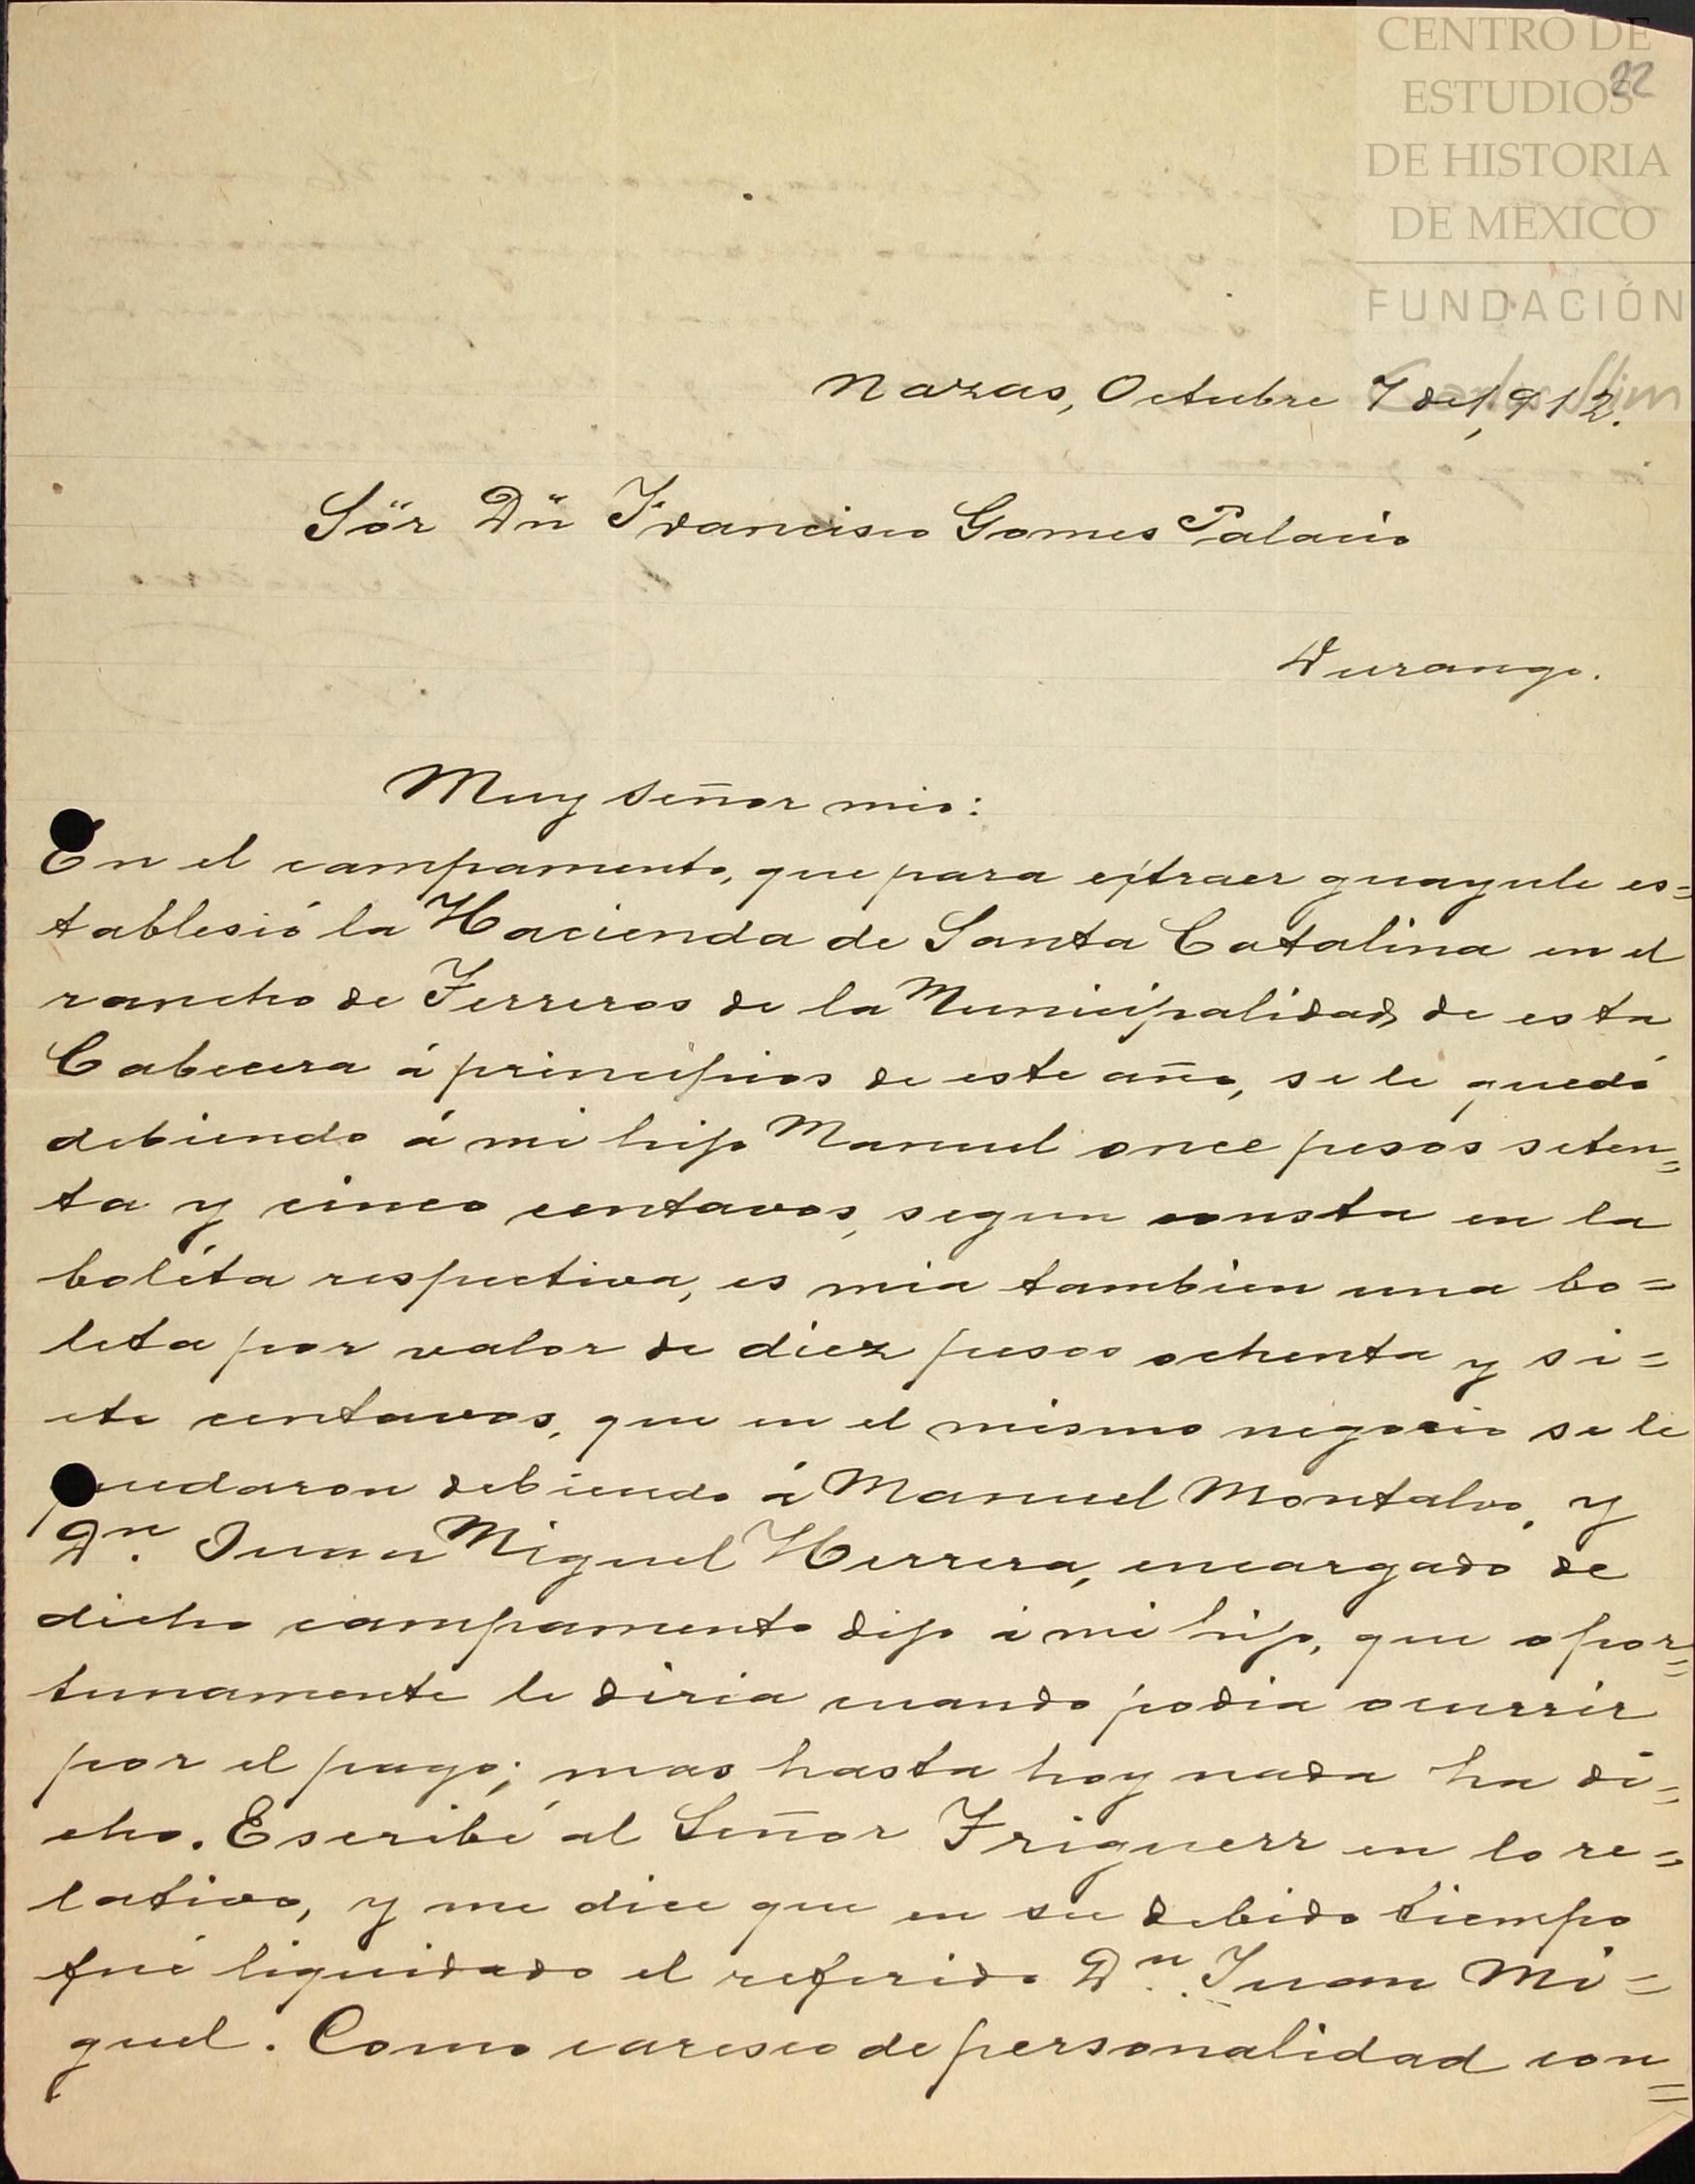 CENTRO DE
ESTUDIOS
DE HISTORIA
DE MEXICO
FUNDACIÓN
Carlos Slim
22
Nazas, Octubre 7 de 1,912.
Sör Dn̈ Francisco Gomes Palacio
Durango.
Muy señor mio:
En el campamento, que para ejtraer guayule es=
tablesió la Hacienda de Santa Catalina en el
rancho de Ferreros de la Municipalidad, de esta
Cabecera á principios de este año, se le quedó
debiendo á mi hijo Manuel once pesos seten=
ta y cinco centavos, segun consta en la
boléta respectiva, es mia tambien una bo=
leta por valor de diez pesos ochenta y si=
ete centavos, que en el mismo negocio se le
quedaron debiendo á Manuel Montalvo, y
Dn. Juan Miguel Herrera, encargado de
dicho campamento dijo á mi hijo, que opor=
tunamente le diria cuando podia ocurrir
por el pago; mas hasta hoy nada ha di=
cho. Escribí al Señor Friguerr en lo re=
lativo, y me dice que en su debido tiempo
fué liquidado el referido Dn. Juan Mi=
guel. Como caresco de personalidad con=